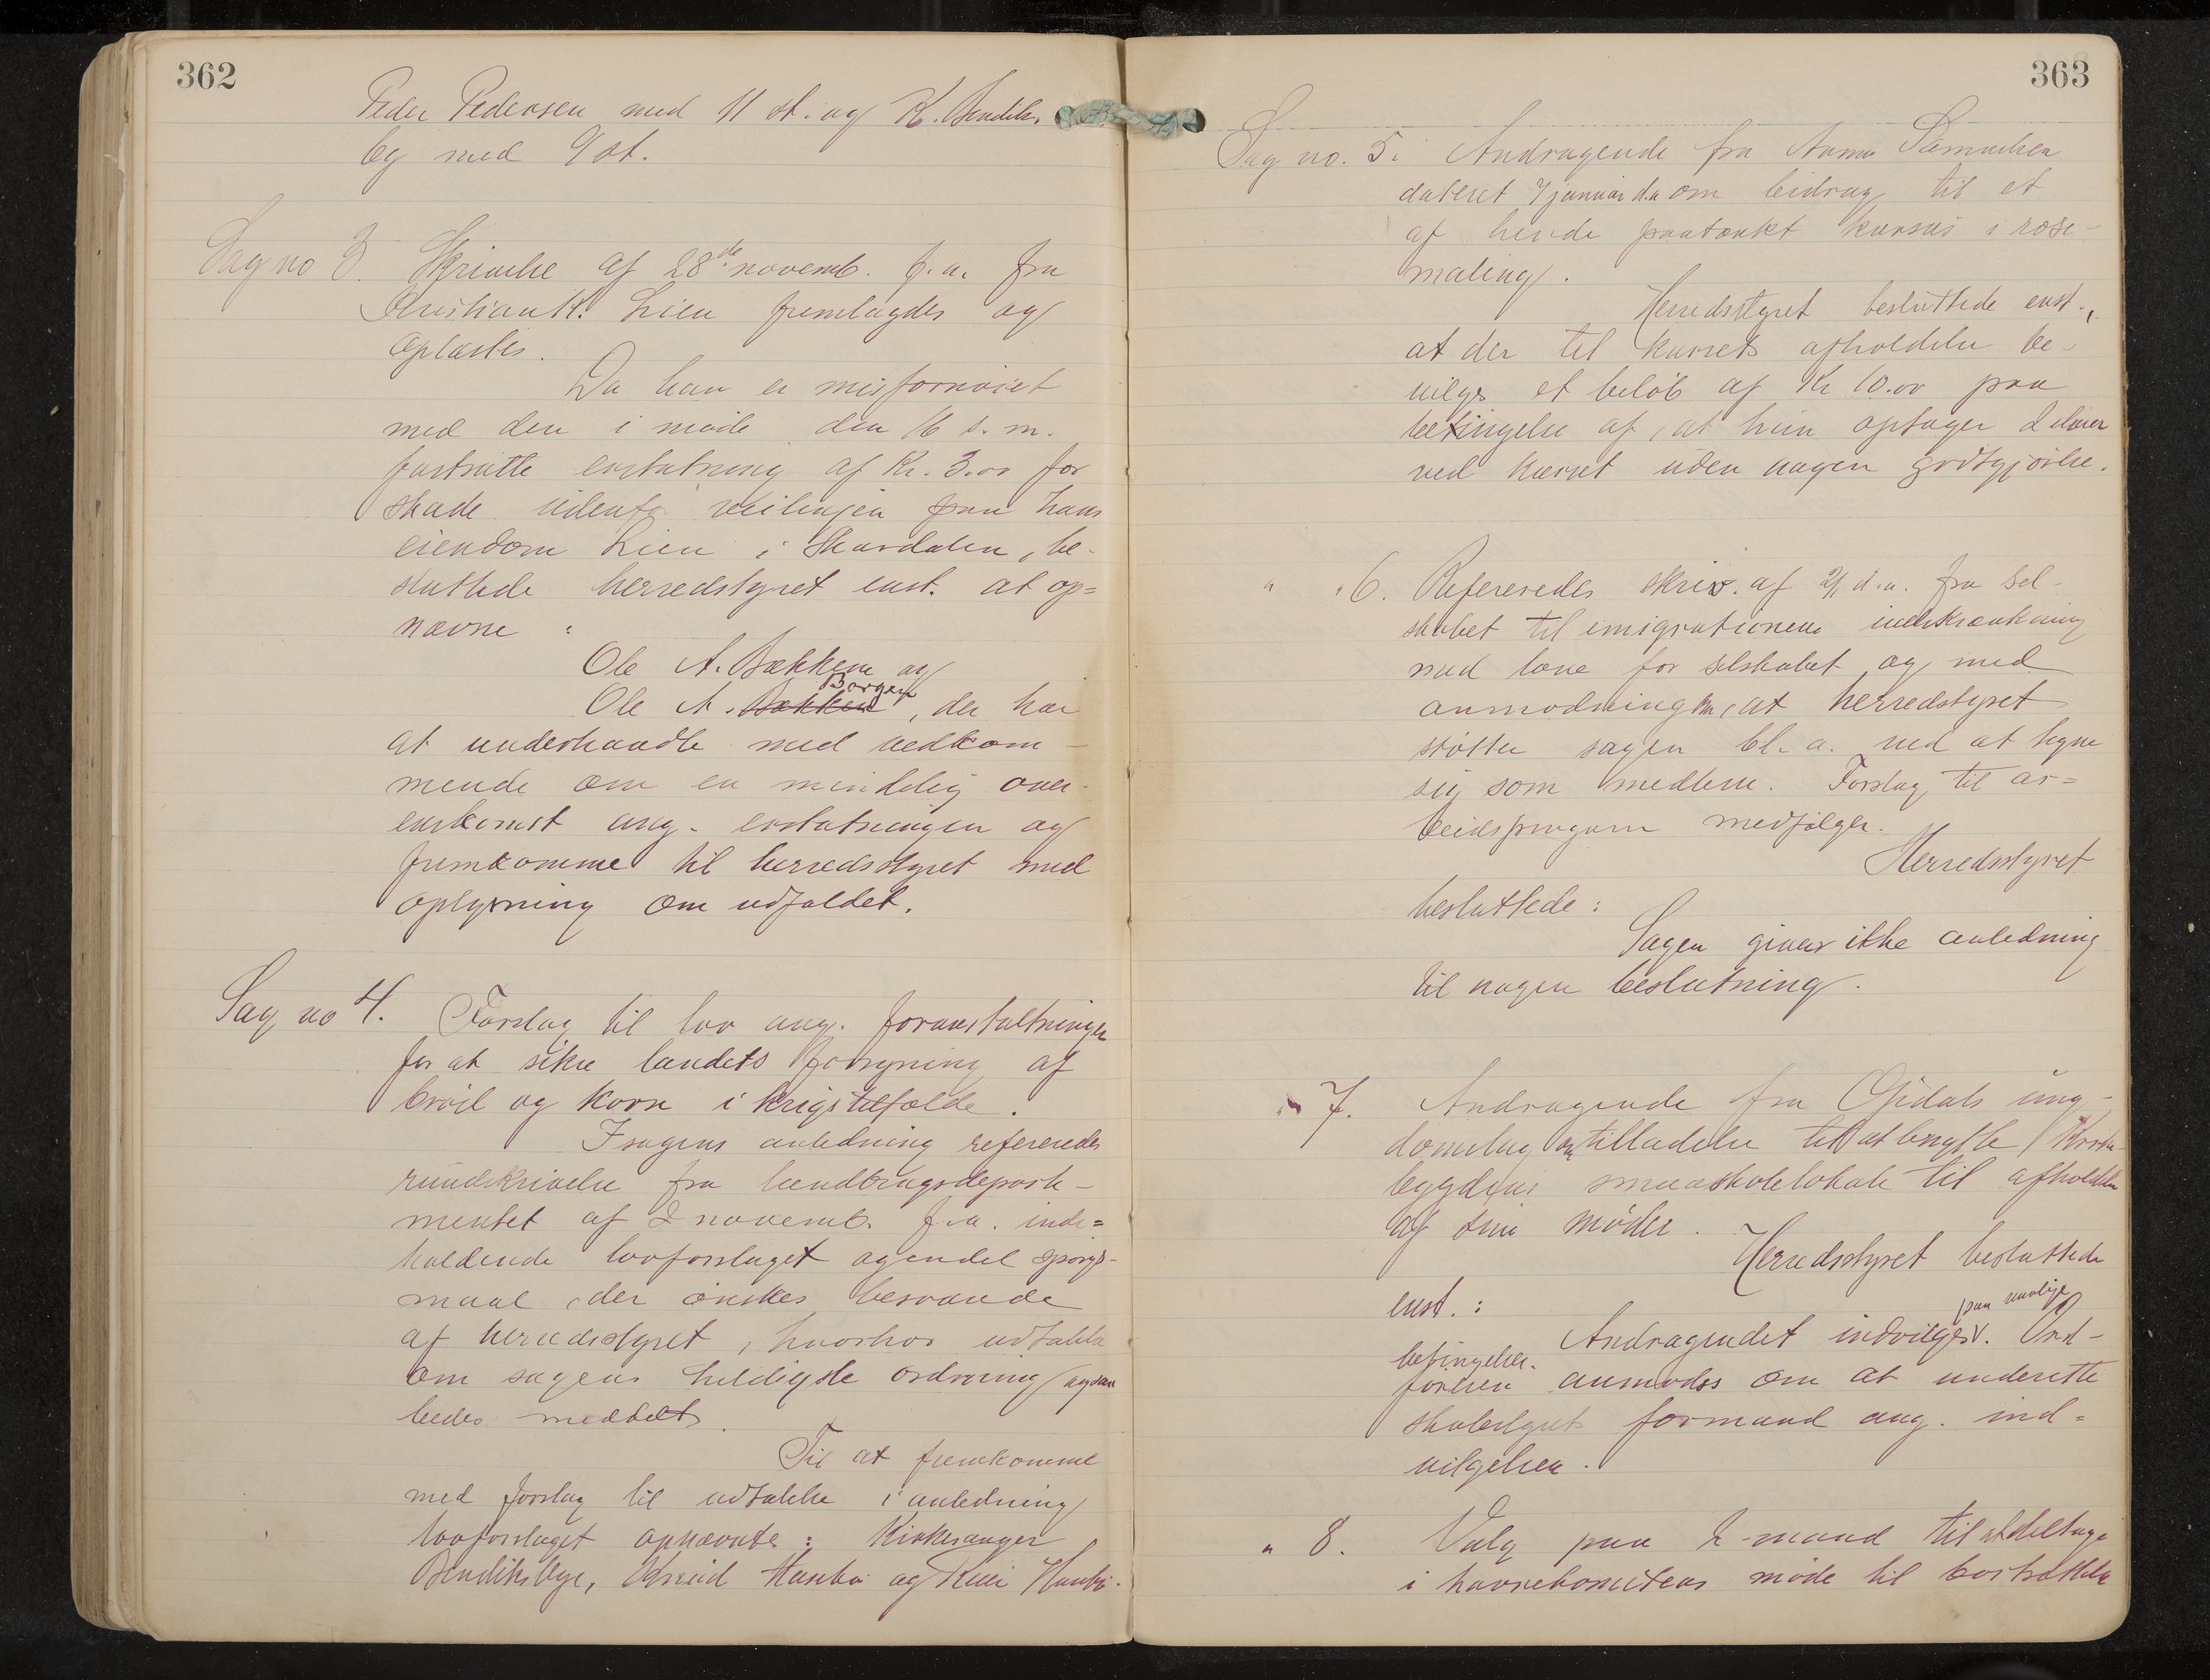 362
Peder Pedersen med 11 st. og K. Bendiks
by med 9 st.
Sag no 3. Skrivelse af 28de novemb. f.a. fra
Kristian K. Lien fremlagdes og
oplæstes.
Da han er misfornøiet
med den i møde den 16 s.m.
fastsatte erstatning af Kr. 3.00 for
skade udenfor veilinjen paa hans
eiendom Lien i Skardalen, be-
sluttede herredstyret enst. at op=
nævne :
Ole A. Bækken og
Ole A. Bækken Borgen, der har
at underhandle med vedkom-
mende om en mindelig over-
enskomst ang. erstatningen og
fremkomme til herredsstyret med
oplysning om udfaldet.
Sag no 4. Forslag til lov ang. foranstaltninger
for at sikre landets forsyning af
brød og korn i krigstilfælde.
I sagens anledning refereredes
rundskrivelse fra landbrugsdeparte-
mentet af 2 novemb. f.a. inde=
holdende lovforslaget og endel spørgs-
maal, der ønskes besvarede
af herredsstyret, hvorhos udtalelse
om sagens heldigste ordning
bedes meddelt.
Til at fremkomme
med forslag til udtalelse i anledning
lovforslaget opnævntes: Kirkesanger
Bendiksbye, Knud og
363
Sag no. 5. Andragende fra Anna Samuelsen
dateret 7 januar d.a om bidrag til et
af hende paatænkt kursus i rose-
maling.
Herredsstyret besluttede enst.,
at der til kursets afholdelse be-
vilges et beløb af Kr 10.00 paa
betingelse af, at hun optager 2 elever
ved kurset uden nogen godtgjørelse.
" " 6. Refereredes skriv. af 2/1 d.a. fra Sel-
skabet til emigrationens indskrænkning
med love for selskabet og med
anmodning om, at herredstyret
støtter sagen bl.a. ved at tegne
sig som medlem. Forslag til ar=
beidsprogram medfølger.
Herredsstyret
besluttede :
Sagen giver ikke anledning
til nogen beslutning.
" 7. Andragende fra Opdals ung-
domslag om tilladelse til at benytte
bygdens smaaskolelokale til afholdelse
af sine møder.
Herredsstyret besluttede
enst. :
Andragendet indvilges paa vanlige
betingelser. Ord-
føreren anmodes om at underette
skolestyrets formand ang. ind=
vilgelsen.
" 8. Valg paa 2 mænd til at deltage
i havnekomiteens møde til